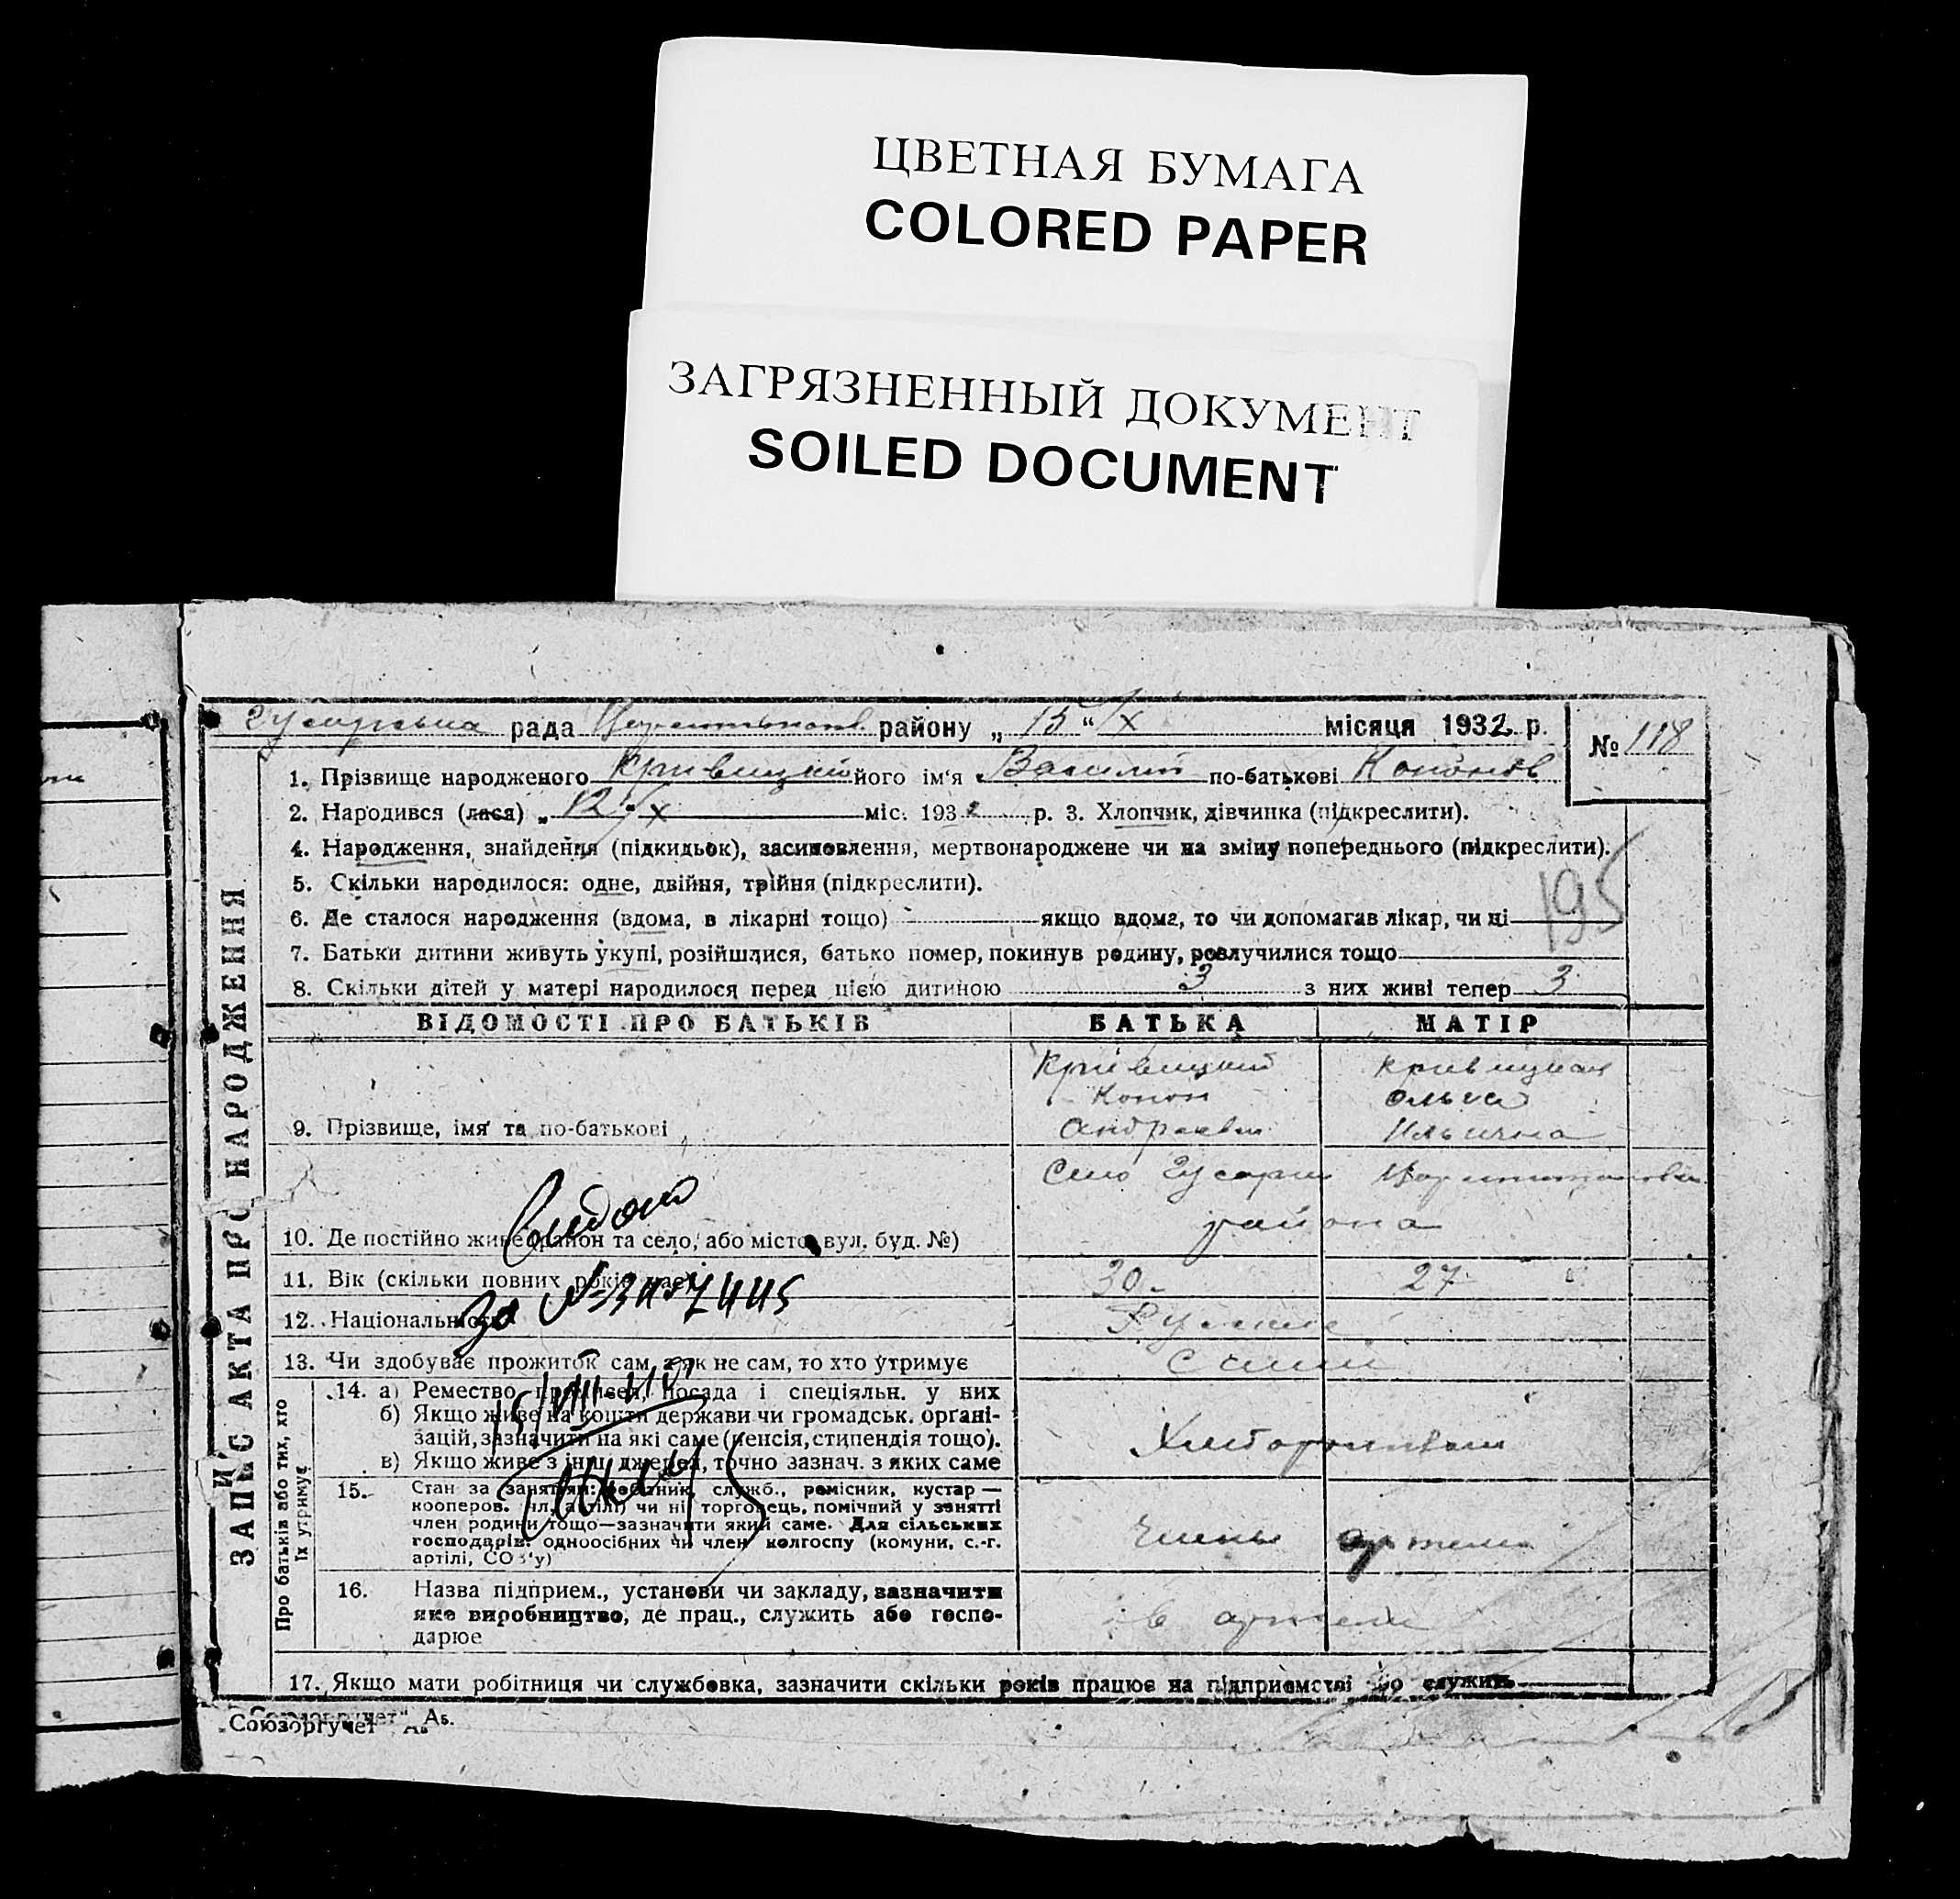 ЦВЕТНАЯ БУМАГА
COLORED PAPER
ЗАГРЯЗНЕННЫЙ ДОКУМЕНТ
SOILED DOCUMENT
рада району „ 15 “ /X місяця 1932 р. № 118
1. Прізвище народженого Кривицкий його ім'я Василий по-батькові Кононов
2. Народився (лася) „ 12 “ X міс. 1932 р. 3. Хлопчик, дівчинка (підкреслити).
4. Народження, знайдення (підкидьок), засиновлення, мертвонароджене чи на зміну попереднього (підкреслити).
5. Скільки народилося: одне, двійня, трійня (підкреслити).
195
6. Де сталося народження (вдома, в лікарні тощо) якщо вдома, то чи допомагав лікар, чи ні
7. Батьки дитини живуть укупі, розійшлися, батько помер, покинув родину, розлучилися тощо
8. Скільки дітей у матері народилося перед цією дитиною 3 з них живі тепер 3
ЗАПИС АКТА ПРО НАРОДЖЕННЯ
ВІДОМОСТІ ПРО БАТЬКІВ БАТЬКА МАТІР
Кривицкий Кривицкая
Конон Ольга
9. Прізвище, імя' та по-батькові Андреевич Ильична
Село района
10. Де постійно живе (район та село, або місто, вул. буд. №)
11. Вік (скільки повних років має) 30 27
За №
12. Національність Руские
13. Чи здобуває прожиток сам, а як не сам, то хто утримує Сами
Про батьків або тих, хто їх утримує
14. а) Ремество, професія, посада і спеціяльн. у них
б) Якщо живе на кошти держави чи громадськ. органі-
зацій, зазначити на які саме (пенсія, стипендія тощо).
в) Якщо живе з інш. джерел, точно зазнач. з яких саме
15. Стан за заняттям: робітник, служб., ремісник, кустар —
кооперов. (чл. артілі) чи ні, торговець, помічний у занятті
член родини тощо—зазначити який саме. Для сільських
господарів: одноосібних чи член колгоспу (комуни, с.-г.
артілі, СОЗ'у)
Члены артели
16. Назва підприєм., установи чи закладу, зазначити
яке виробництво, де прац., служить або госпо-
дарює
в артели
17. Якщо мати робітниця чи службовка, зазначити скільки років працює на підприємстві або служить
„Союзоргучет“ А5.